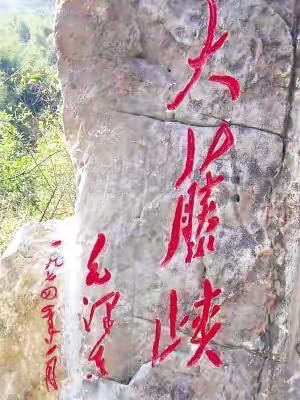 大藤峡
毛泽东
一九七四年十一月